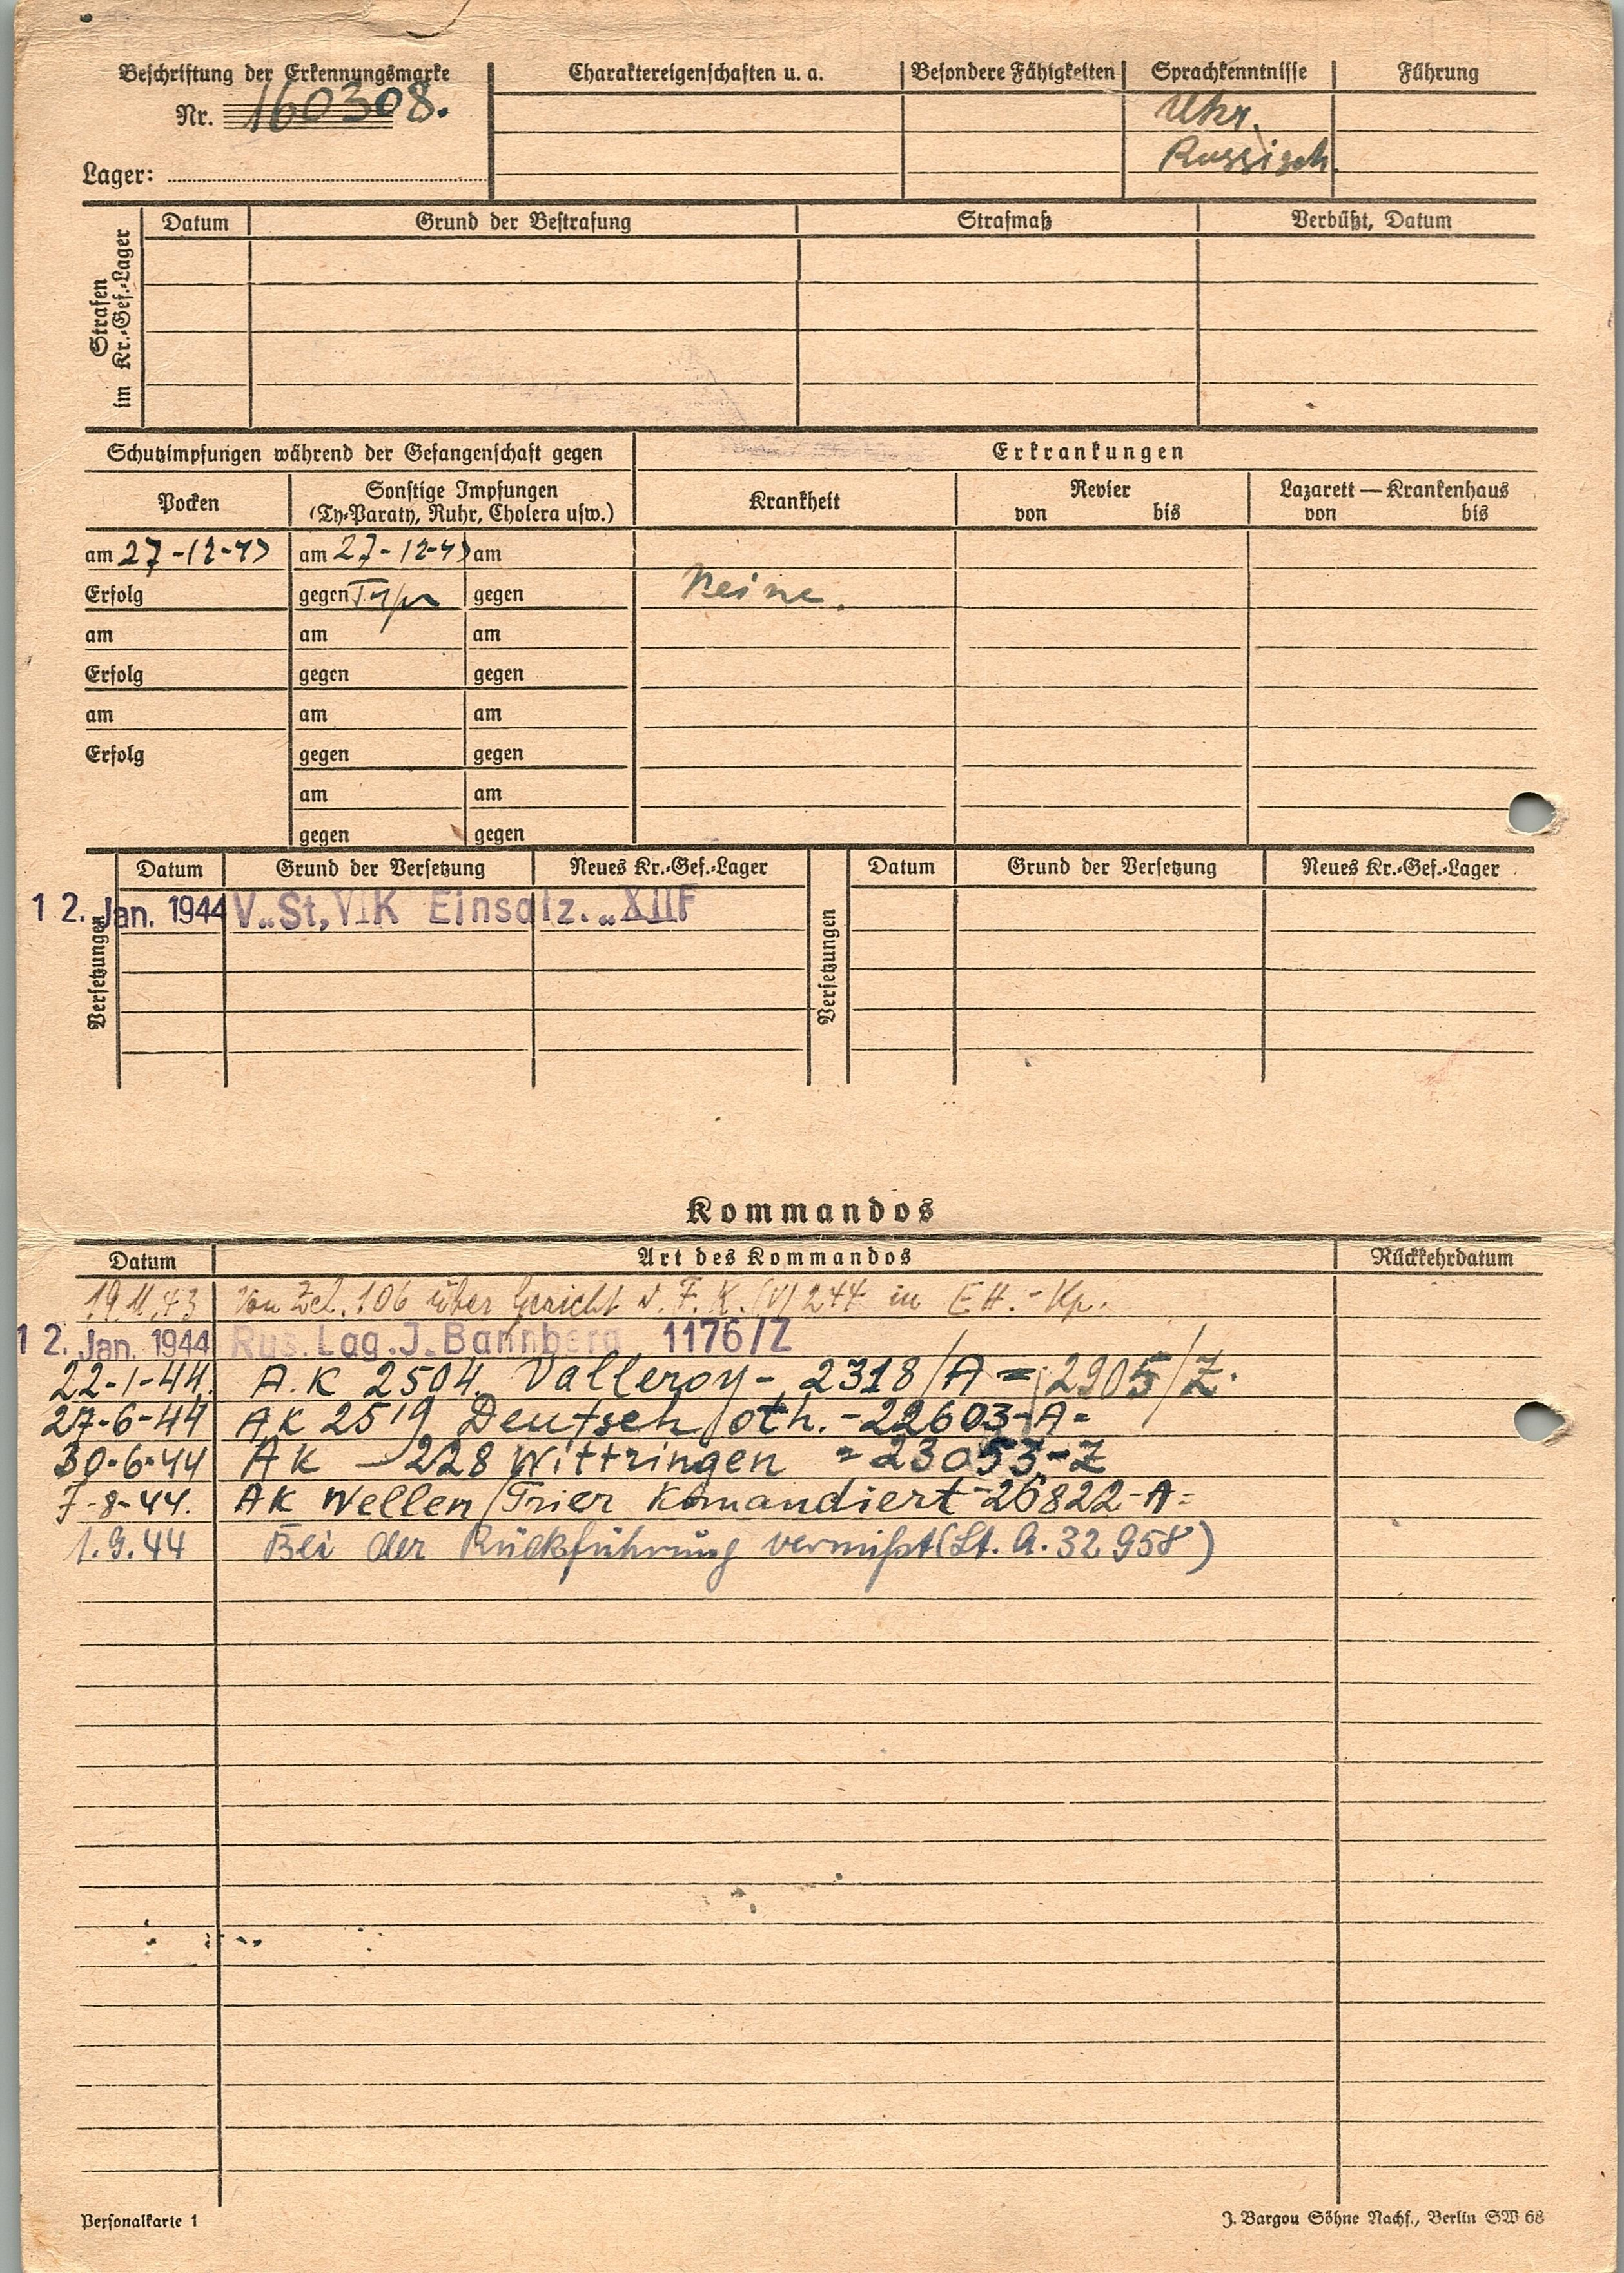 Beschriftung der Erkennungsmarke
Nr. 160308.
Lager:
Charaktereigenschaften u. a.
Besondere Fähigkeiten
Sprachkenntnisse
Führung
Ukr.
Russisch.
Strafen im Kr.-Gef.-Lager
Datum
Grund der Bestrafung
Strafmaß
Verbüßt, Datum
Schutzimpfungen während der Gefangenschaft gegen
Erkrankungen
Pocken
Sonstige Impfungen
(Ty-Paraty, Ruhr, Cholera usw.)
Krankheit
Revier
von bis
Lazarett — Krankenhaus
von bis
am 27-12-43 am 27-12-43 am
Erfolg gegen gegen
Keine.
am am am
Erfolg gegen gegen
am am am
Erfolg gegen gegen
am am
gegen gegen
Versetzungen
Datum Grund der Versetzung Neues Kr.-Gef.-Lager
12. Jan. 1944 V. St, VI K Einsatz. „XIIF
Versetzungen
Datum Grund der Versetzung Neues Kr.-Gef.-Lager
Kommandos
Datum Art des Kommandos Rückkehrdatum
19.11.43 Von Zcl. 106 über Gericht d. F. K. (V) 244 in EH.-Kp.
12. Jan. 1944 Rus. Lag. J. Bannberg 1176/Z
22-1-44. A.K 2504 Valleroy - 2318/A = 2905/Z.
27-6-44 AK 2519 Deutsch oth. - 22603-A=
30-6-44 AK - 228 Wittringen = 23053-Z
7-8-44. AK Wellen/Trier Komandiert - 26822-A=
1.9.44 Bei der Rückführung vermißt (Lt. A. 32958)
Personalkarte 1
J. Bargou Söhne Nachf., Berlin SW 68